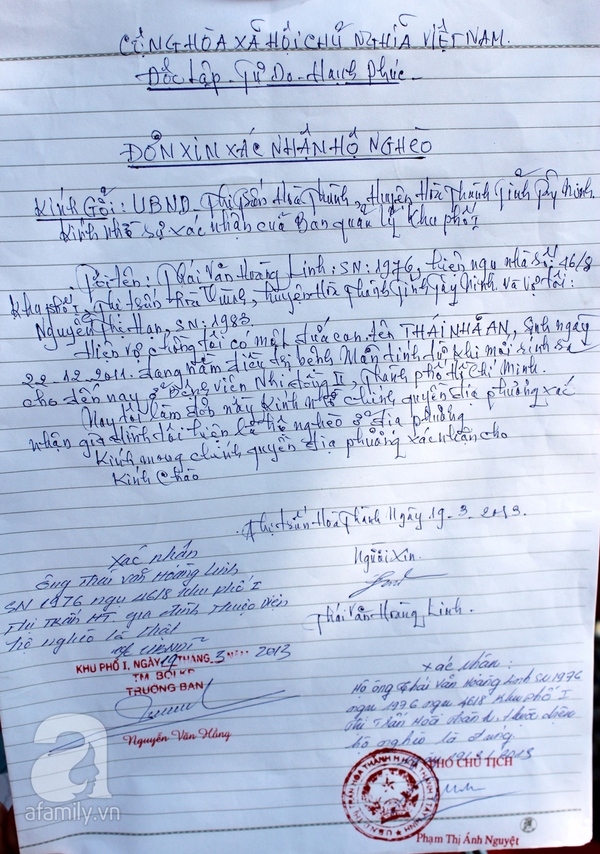 CỘNG HÒA XÃ HỘI CHỦ NGHĨA VIỆT NAM.
Độc Lập - Tự Do - Hạnh Phúc
ĐƠN XIN XÁC NHẬN HỘ NGHÈO
Kính Gởi: UBND. Thị trấn Hòa Thành, Huyện Hòa Thành Tỉnh Tây Ninh.
Kính nhờ sự xác nhận của Ban quản lý Khu phố I
Tôi tên: Thái Văn Hoàng Linh: SN: 1976, hiện ngụ nhà số 46/8
Khu phố I, Thị trấn Hòa Thành, Huyện Hòa Thành Tỉnh Tây Ninh. Và vợ tôi:
Nguyễn Thị Hạn, SN: 1983.
Hiện vợ chồng tôi có một đứa con tên THÁI NHÃ AN, Sinh ngày
22-12-2011. đang nằm điều trị bệnh Mãn tính từ khi mới sinh ra
cho đến nay ở Bệnh viện Nhi đồng II, Thành phố Hồ Chí Minh.
Nay tôi làm đơn này Kính nhờ chính quyền địa phương xác
nhận gia đình tôi hiện là hộ nghèo ở địa phương
Kính mong chính quyền địa phương xác nhận cho
Kính Chào
Thị trấn Hòa Thành Ngày 19-3-2013.
Xác nhận
Người Xin.
Ông Thái Văn Hoàng Linh
SN 1976 ngụ 4618 khu phố I
Thị Trấn HT. gia đình thuộc diện
hộ nghèo là thật
Thái Văn Hoàng Linh.
KHU PHỐ I, NGÀY 19 THÁNG 3 NĂM 2013
TM BQL KP
TRƯỞNG BAN
Nguyễn Văn Hằng
Xác nhận:
Hộ ông Thái Văn Hoàng Linh SN 1976
ngụ 1976 ngụ 4618 Khu phố I
Thị Trấn Hòa Thành thuộc diện
hộ nghèo là đúng
2013
PHÓ CHỦ TỊCH
Phạm Thị Ánh Nguyệt
a
afamily.vn